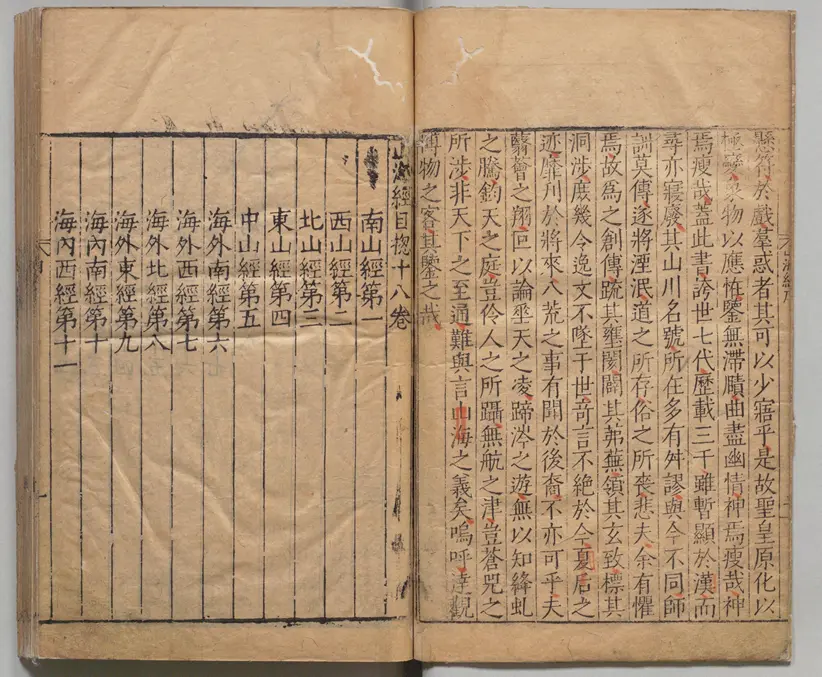 懸筭於戲羣惑者其可以少寤乎是故聖皇原化以
極變象物以應恠鑒無滯賾曲盡幽情神焉瘦哉神
焉瘦哉蓋此書誇世七代歷載三千雖暫顯於漢而
尋亦寢廢其山川名號所在多有舛謬與今不同師
訓莫傳遂將湮泯道之所存俗之所喪悲夫余有懼
焉故爲之創傳疏其壅閡闢其茀蕪領其玄致標其
洞涉庶幾令逸文不墜于世奇言不絕於今夏后之
迹靡刋於將來八荒之事有聞於後裔不亦可乎夫
翳薈之翔叵以論垂天之凌蹄涔之遊無以知絳虬
之騰鈞天之庭豈伶人之所躡無航之津豈蒼兕之
所涉非天下之至通難與言山海之義矣嗚呼達觀
博物之客其鑒之哉
山海經目揔十八卷
南山經第一
西山經第二
北山經第三
東山經第四
中山經第五
海外南經第六
海外西經第七
海外北經第八
海外東經第九
海內南經第十
海內西經第十一